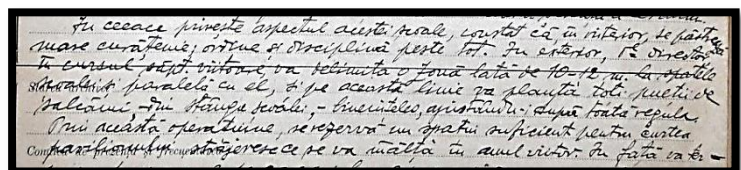 În ceeace privește aspectul acestei școale, constat că în interior, se păstrează
mare curățenie, ordine și disciplină peste tot. În exterior, Dl. director
în cursul săpt. viitoare, va delimita o zonă lată de 10-12 m. la spatele
școalei și paralelă cu el, și pe această linie va planta toți pueții de
salcâmi, din stânga școalei, - bineînțeles, ajustându-i după toată regula.
Prin această operațiune, se rezervă un spațiu suficient pentru curtea
pavilionului străjeresc ce se va înălța în anul viitor. În față va tr-